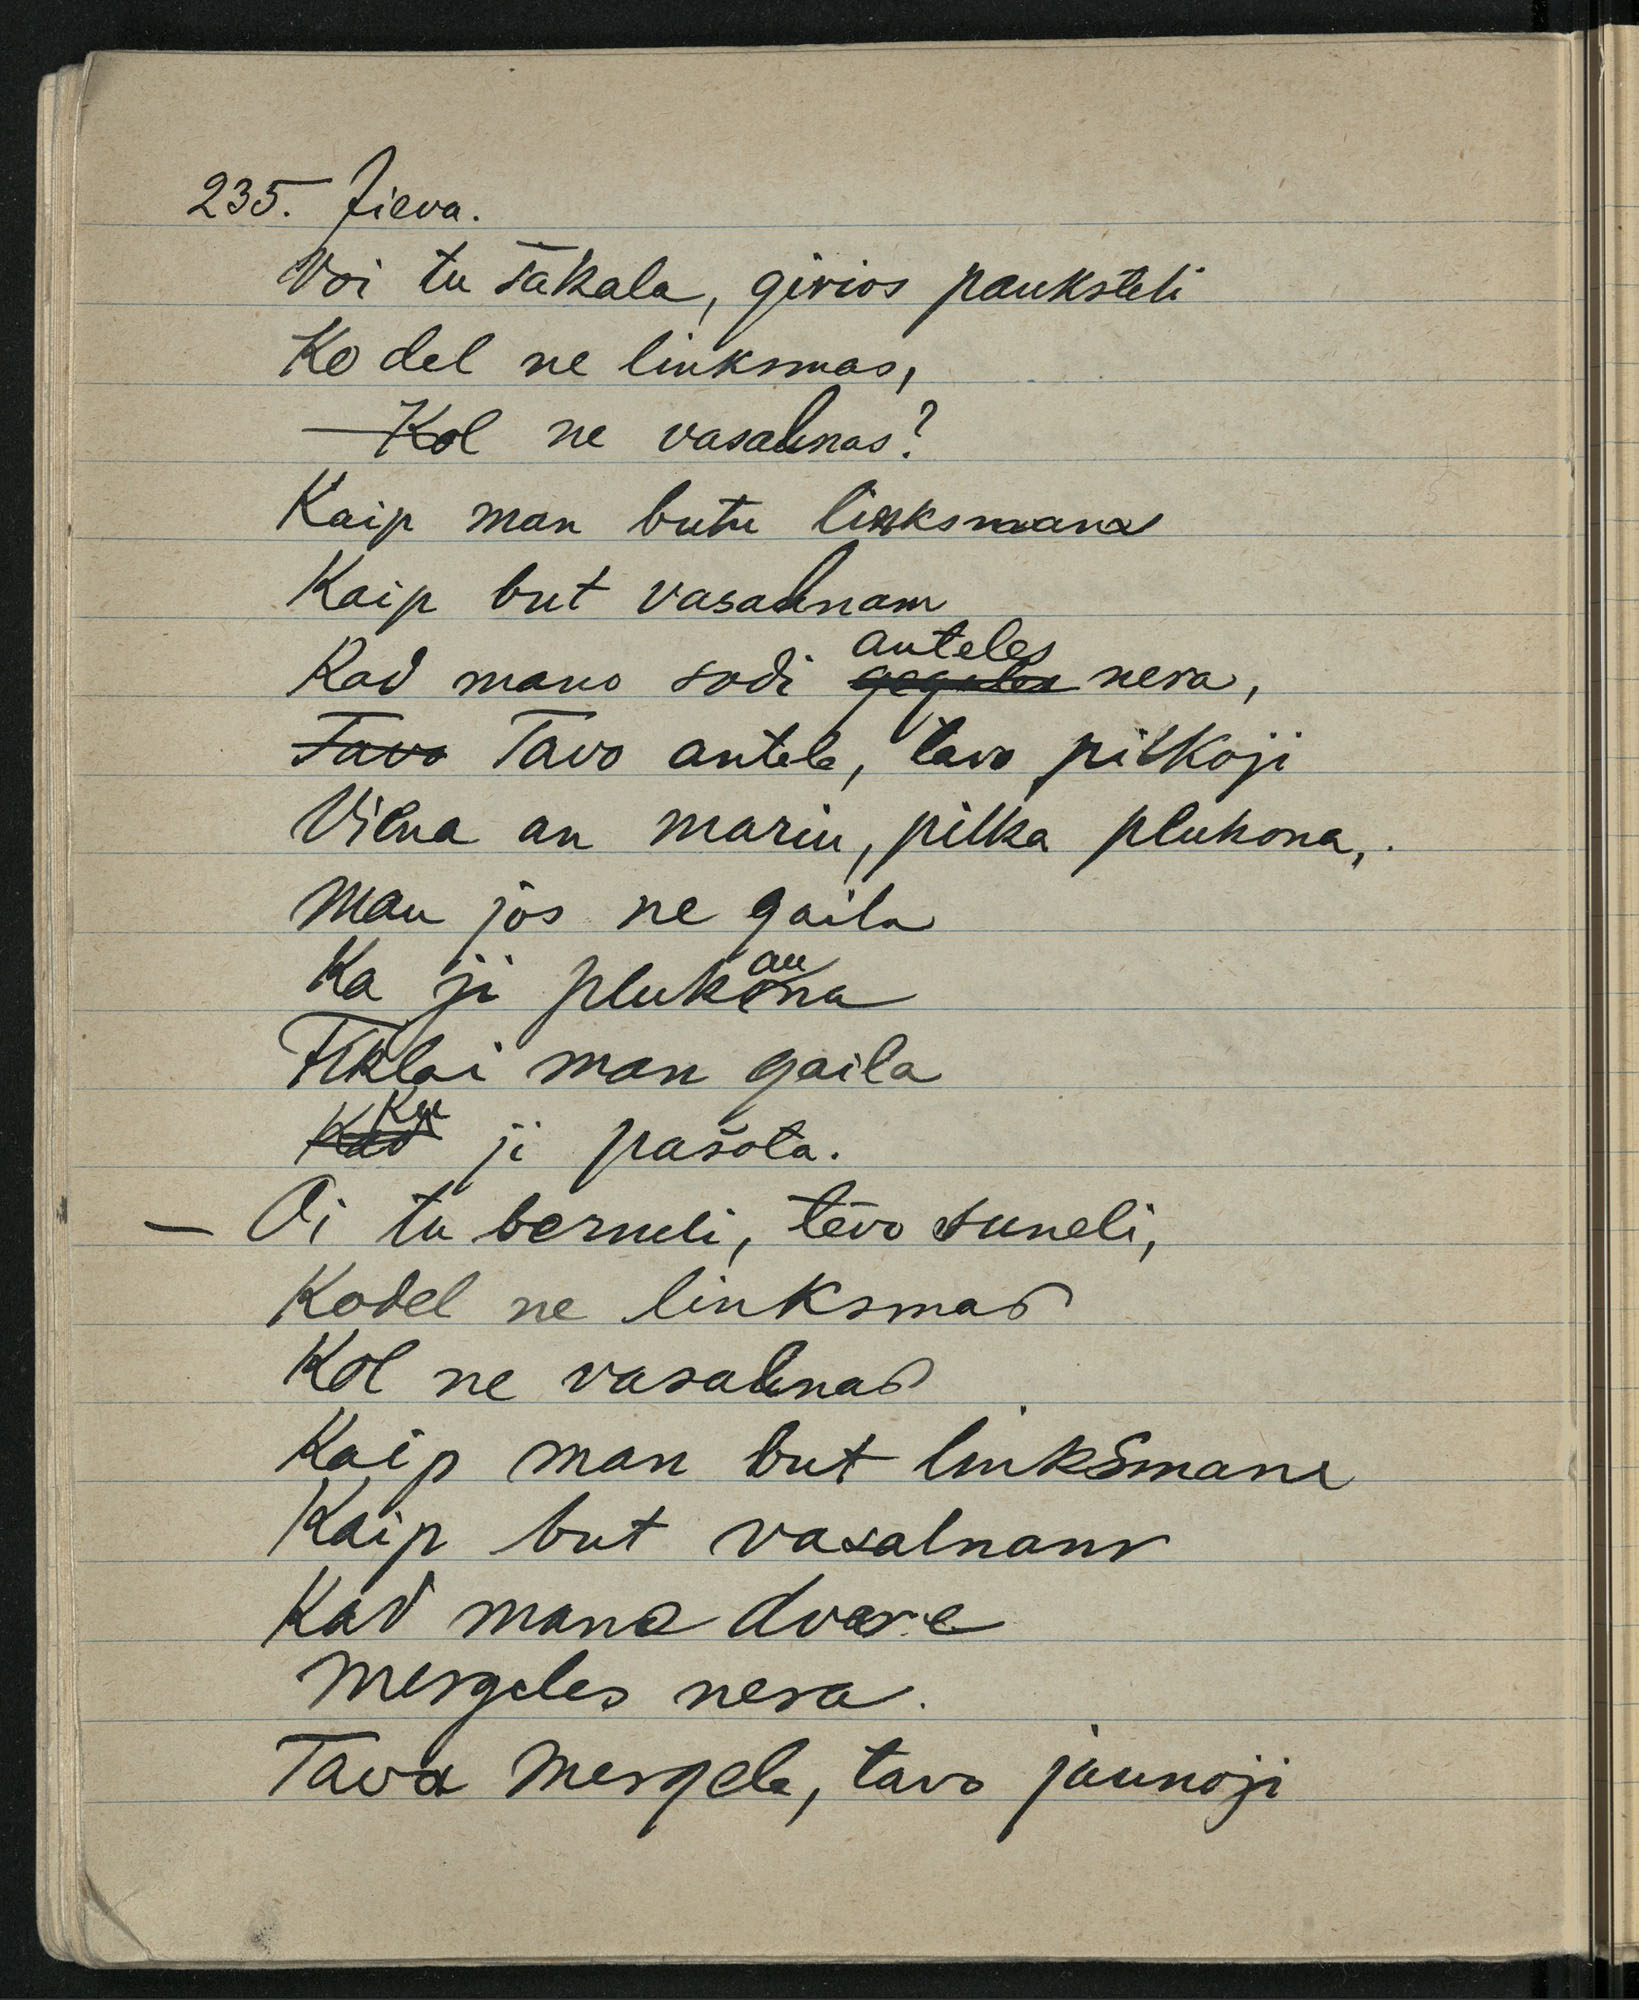 235. Jieva.
Voi tu sakala, girios pauksteli
Ko del ne linksmas,
Kol ne vasalnas?
Kaip man butu linksmam
Kaip but vasalnam
anteles
Kad mano sodi nera,
Tavo Tavo antele, tavo pilkoji
Viena an mariu, pilka plukona,
Man jos ne gaila
Ka ji plukauna
Tiklai man gaila
Ku
Kad ji pašota.
— Oi tu berneli, tėvo suneli,
Kodel ne linksmas
Kol ne vasalnas
Kaip man but linksmam
Kaip but vasalnam
Kad mano dvare
Mergeles nera.
Tava mergele, tavo jaunoji